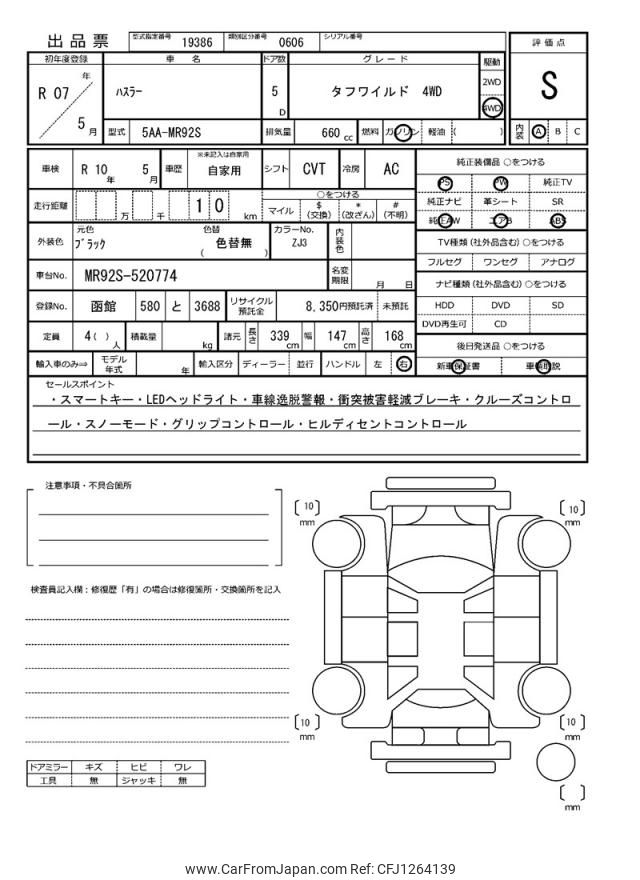 出品票 型式指定番号 19386 類別区分番号 0606 シリアル番号
評価点
S
内装 A B C
初年度登録 車名 ドア数 グレード 駆動
R 07 年 5 月 ハスラー 5 D タフワイルド 4WD 2WD 4WD
型式 5AA-MR92S 排気量 660 cc 燃料 ガソリン 軽油 ( )
車検 R 10 年 5 月 車歴 ※未記入は自家用 自家用 シフト CVT 冷房 AC
走行距離 万 千 1 0 km
○をつける
マイル $ (交換) * (改ざん) # (不明)
外装色 元色 ブラック 色替 ( 色替無 ) カラーNo. ZJ3 内装色
車台No. MR92S-520774 名変期限 月 日
登録No. 函館 580 と 3688 リサイクル預託金 8,350円預託済 未預託
定員 4( ) 人 積載量 kg 諸元 長さ 339 cm 幅 147 cm 高さ 168 cm
輸入車のみ⇒ モデル年式 年 輸入区分 ディーラー 並行 ハンドル 左 右
純正装備品 ○をつける
PS PW 純正TV
純正ナビ 革シート SR
純正AW エアB ABS
TV種類 (社外品含む) ○をつける
フルセグ ワンセグ アナログ
ナビ種類 (社外品含む) ○をつける
HDD DVD SD
DVD再生可 CD
後日発送品 ○をつける
新車保証書 車輌取説
セールスポイント
・スマートキー・LEDヘッドライト・車線逸脱警報・衝突被害軽減ブレーキ・クルーズコントロ
ール・スノーモード・グリップコントロール・ヒルディセントコントロール
注意事項・不具合箇所
検査員記入欄：修復歴「有」の場合は修復箇所・交換箇所を記入
ドアミラー キズ ヒビ ワレ
工具 無 ジャッキ 無
〔10〕mm
〔10〕mm
〔10〕mm
〔10〕mm
〔 〕mm
www.CarFromJapan.com Ref: CFJ1264139